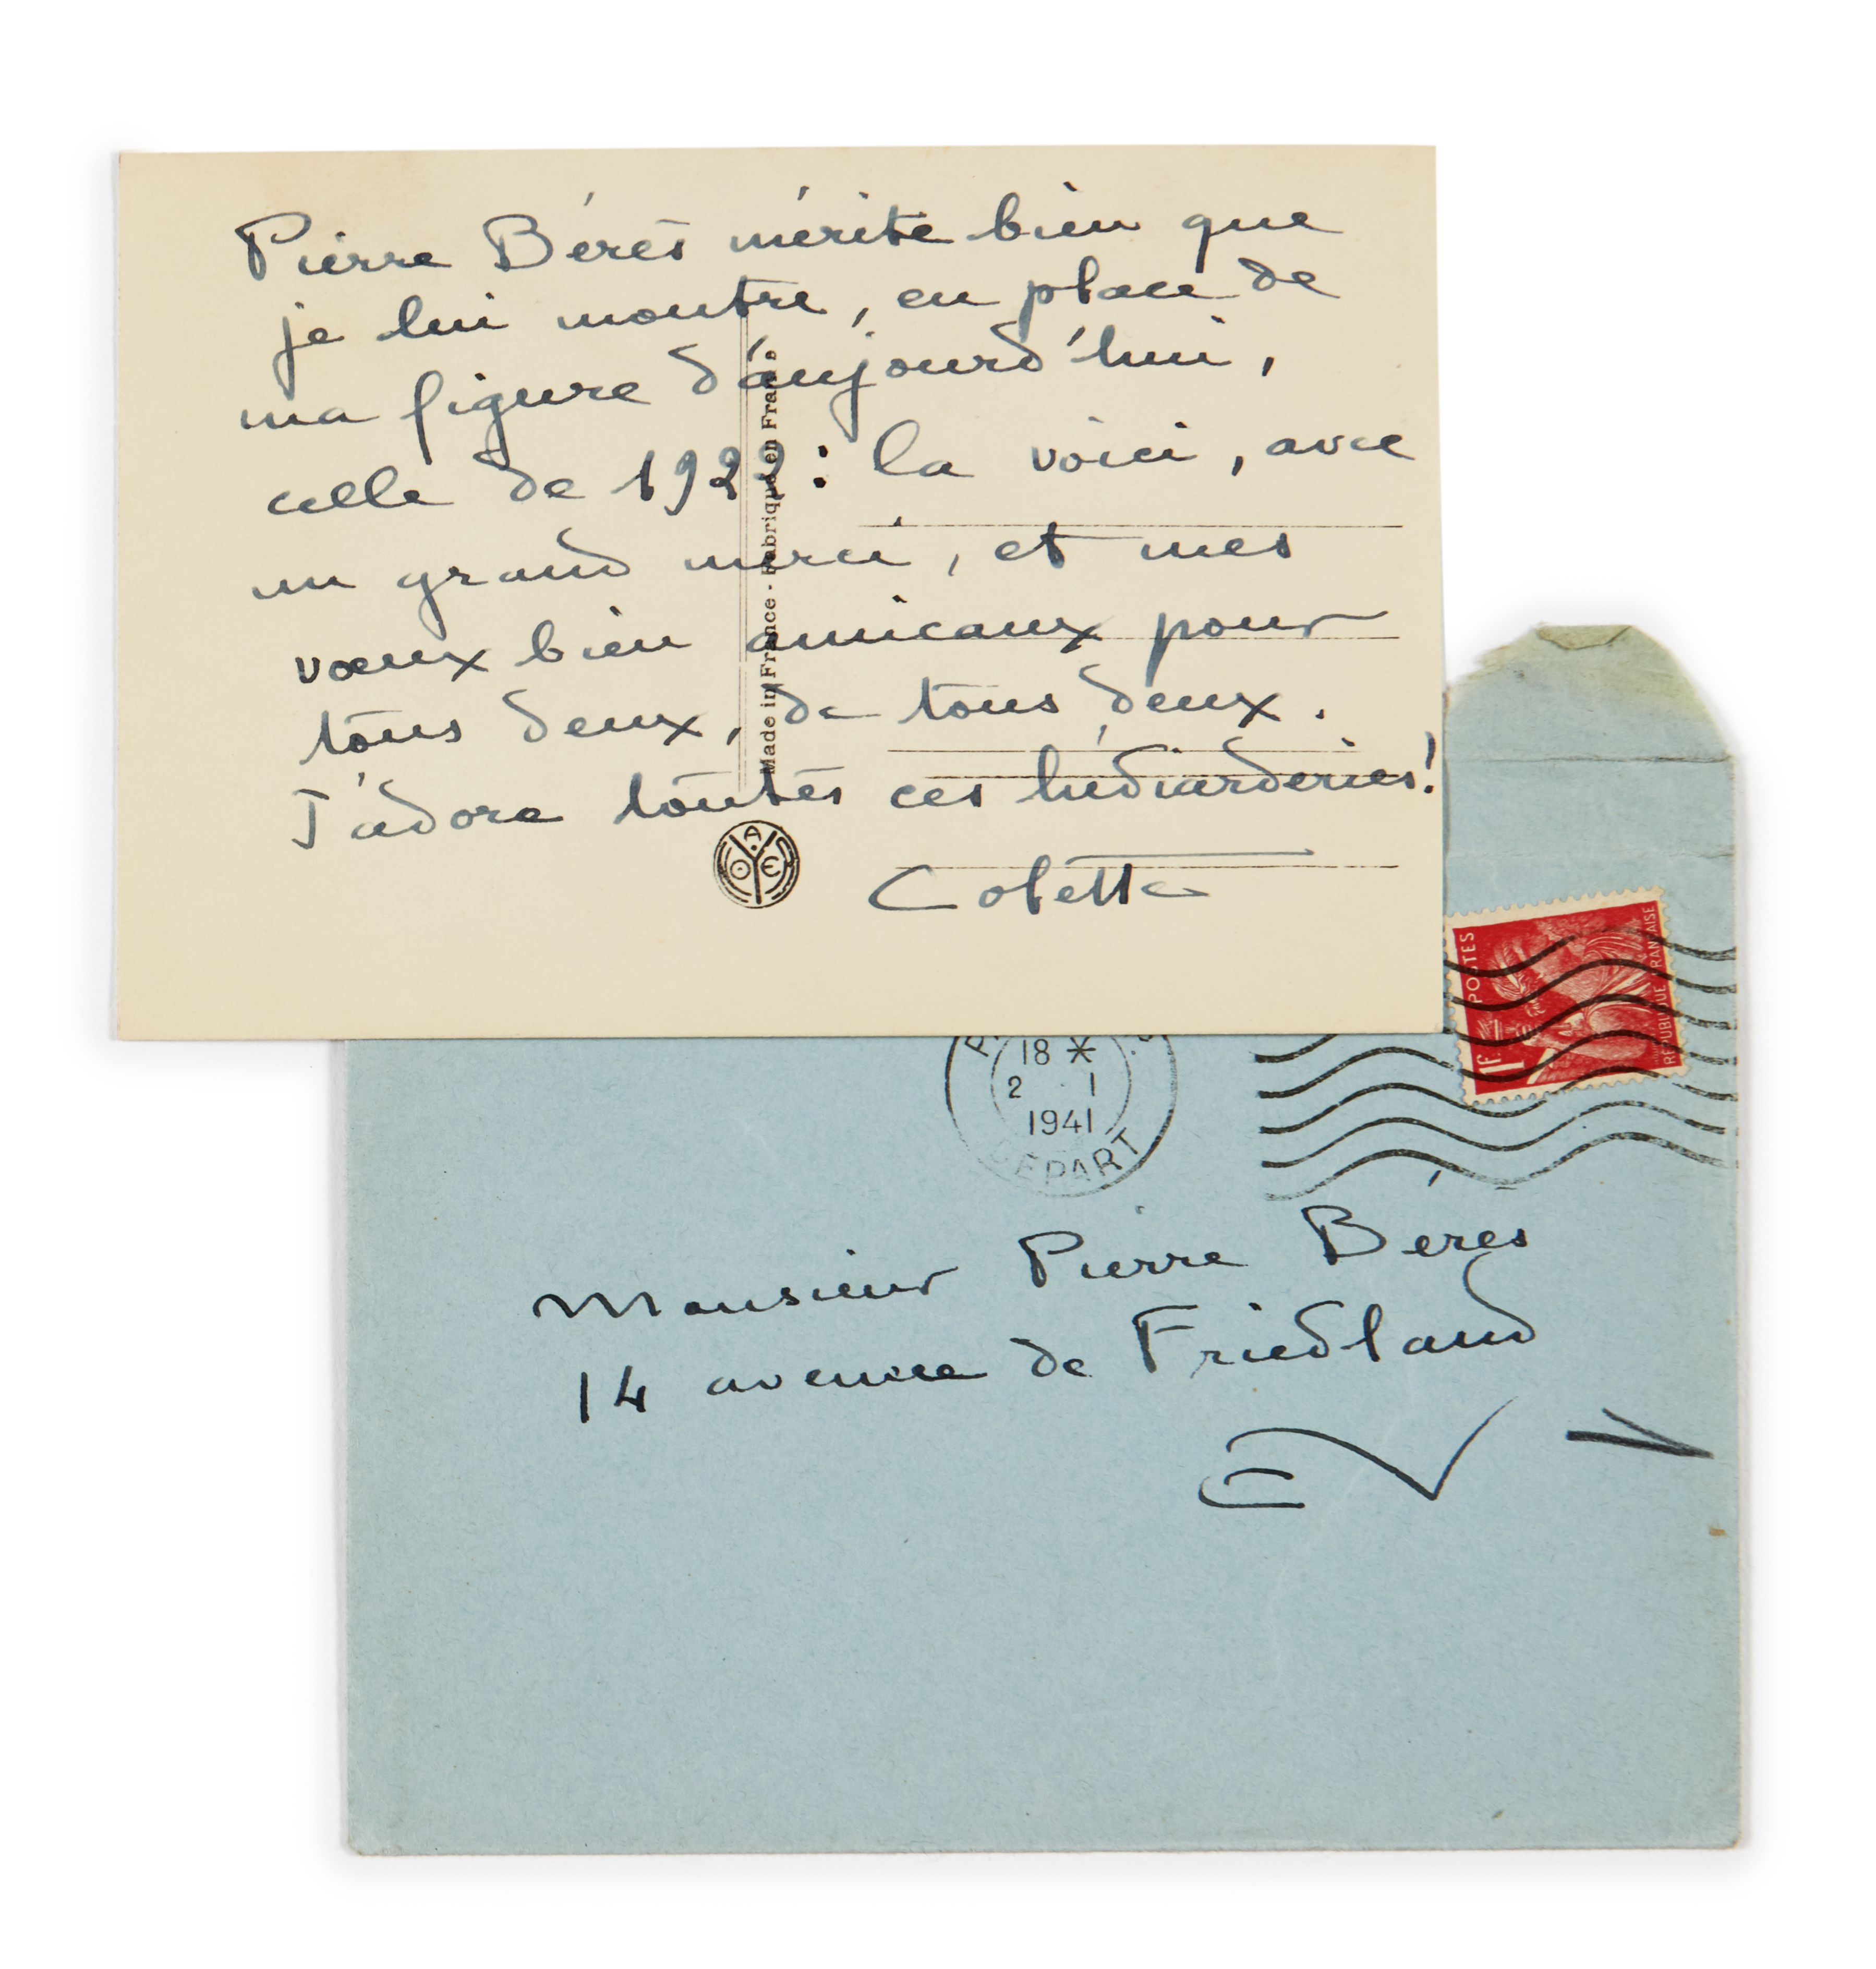 Pierre Bérès mérite bien que
je lui montre, en place de
ma figure d'aujourd'hui,
celle de 1922 : la voici, avec
un grand merci, et mes
vœux bien amicaux pour
tous deux, de tous deux.
J'adore toutes ces hédiarderies!
Colette
Made in France - Fabriqué en France
A
O C
POSTES
RÉPUBLIQUE FRANÇAISE
1F
18 *
2 1
1941
DÉPART
Monsieur Pierre Bérès
14 avenue de Friedland
EV